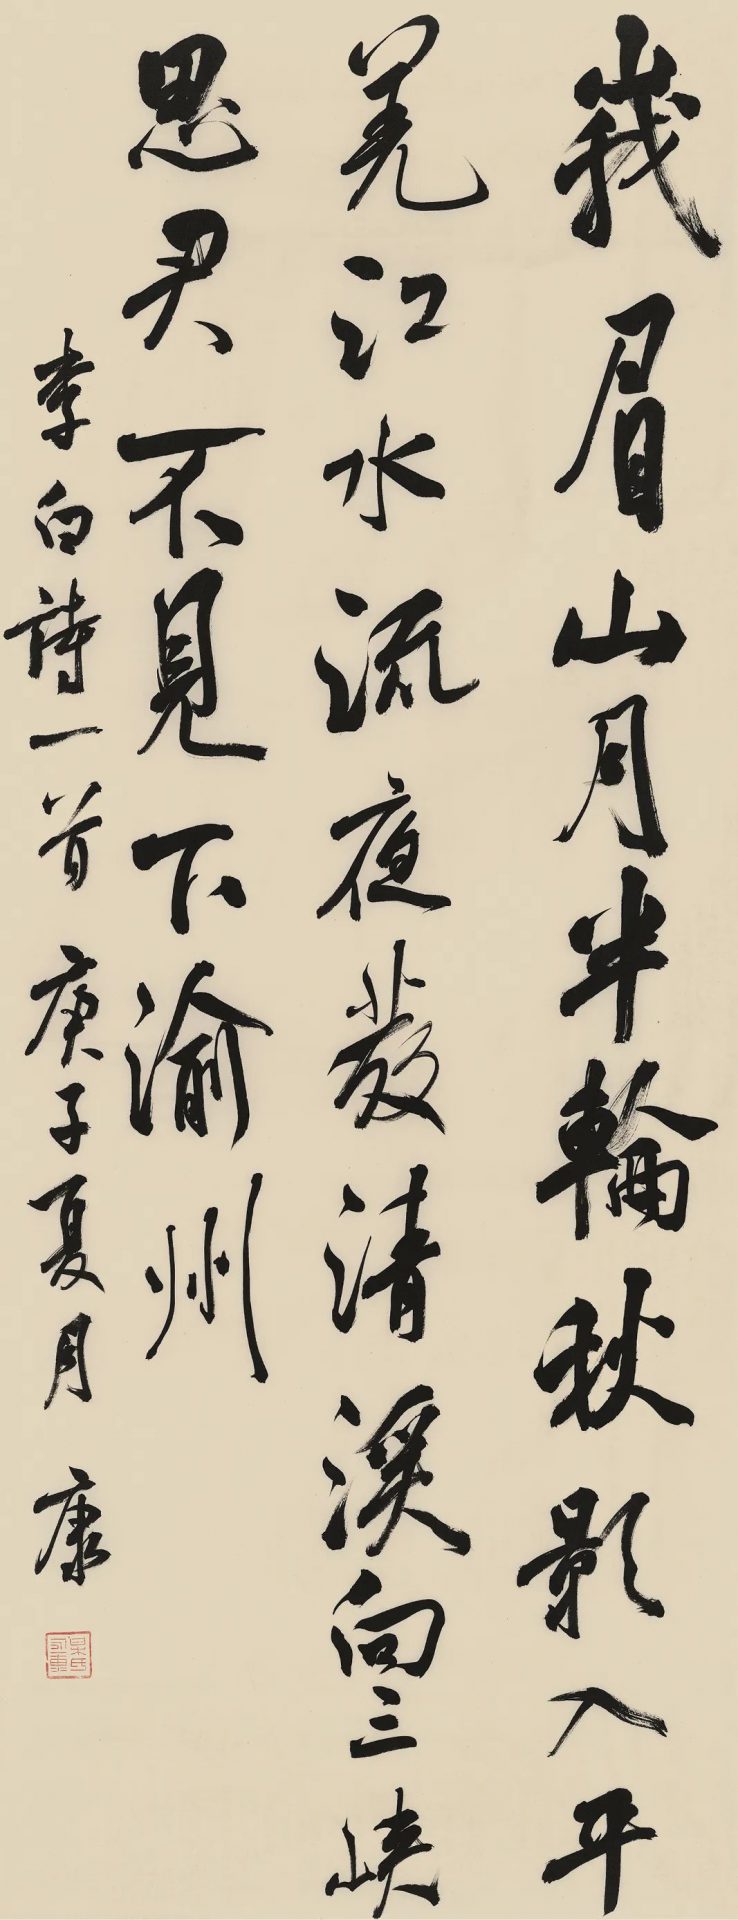 峩眉山月半輪秋影入平
羌江水流夜發清溪向三峽
思君不見下渝州
李白詩一首 庚子夏月 康